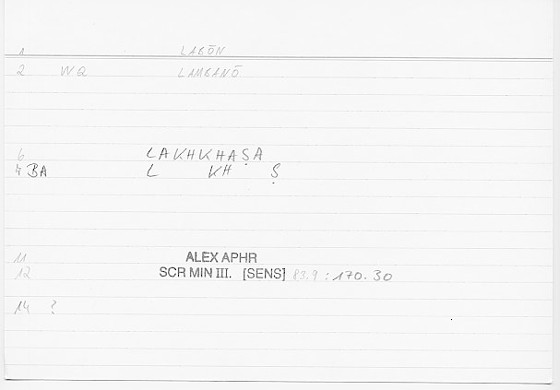 1 LABŌN
2 WQ LAMBANŌ
6 LAKHKHAṢA
4 BA L KH Ṣ
11 ALEX APHR
12 SCR MIN III. [SENS] 83.9 : 170.30
14 ?